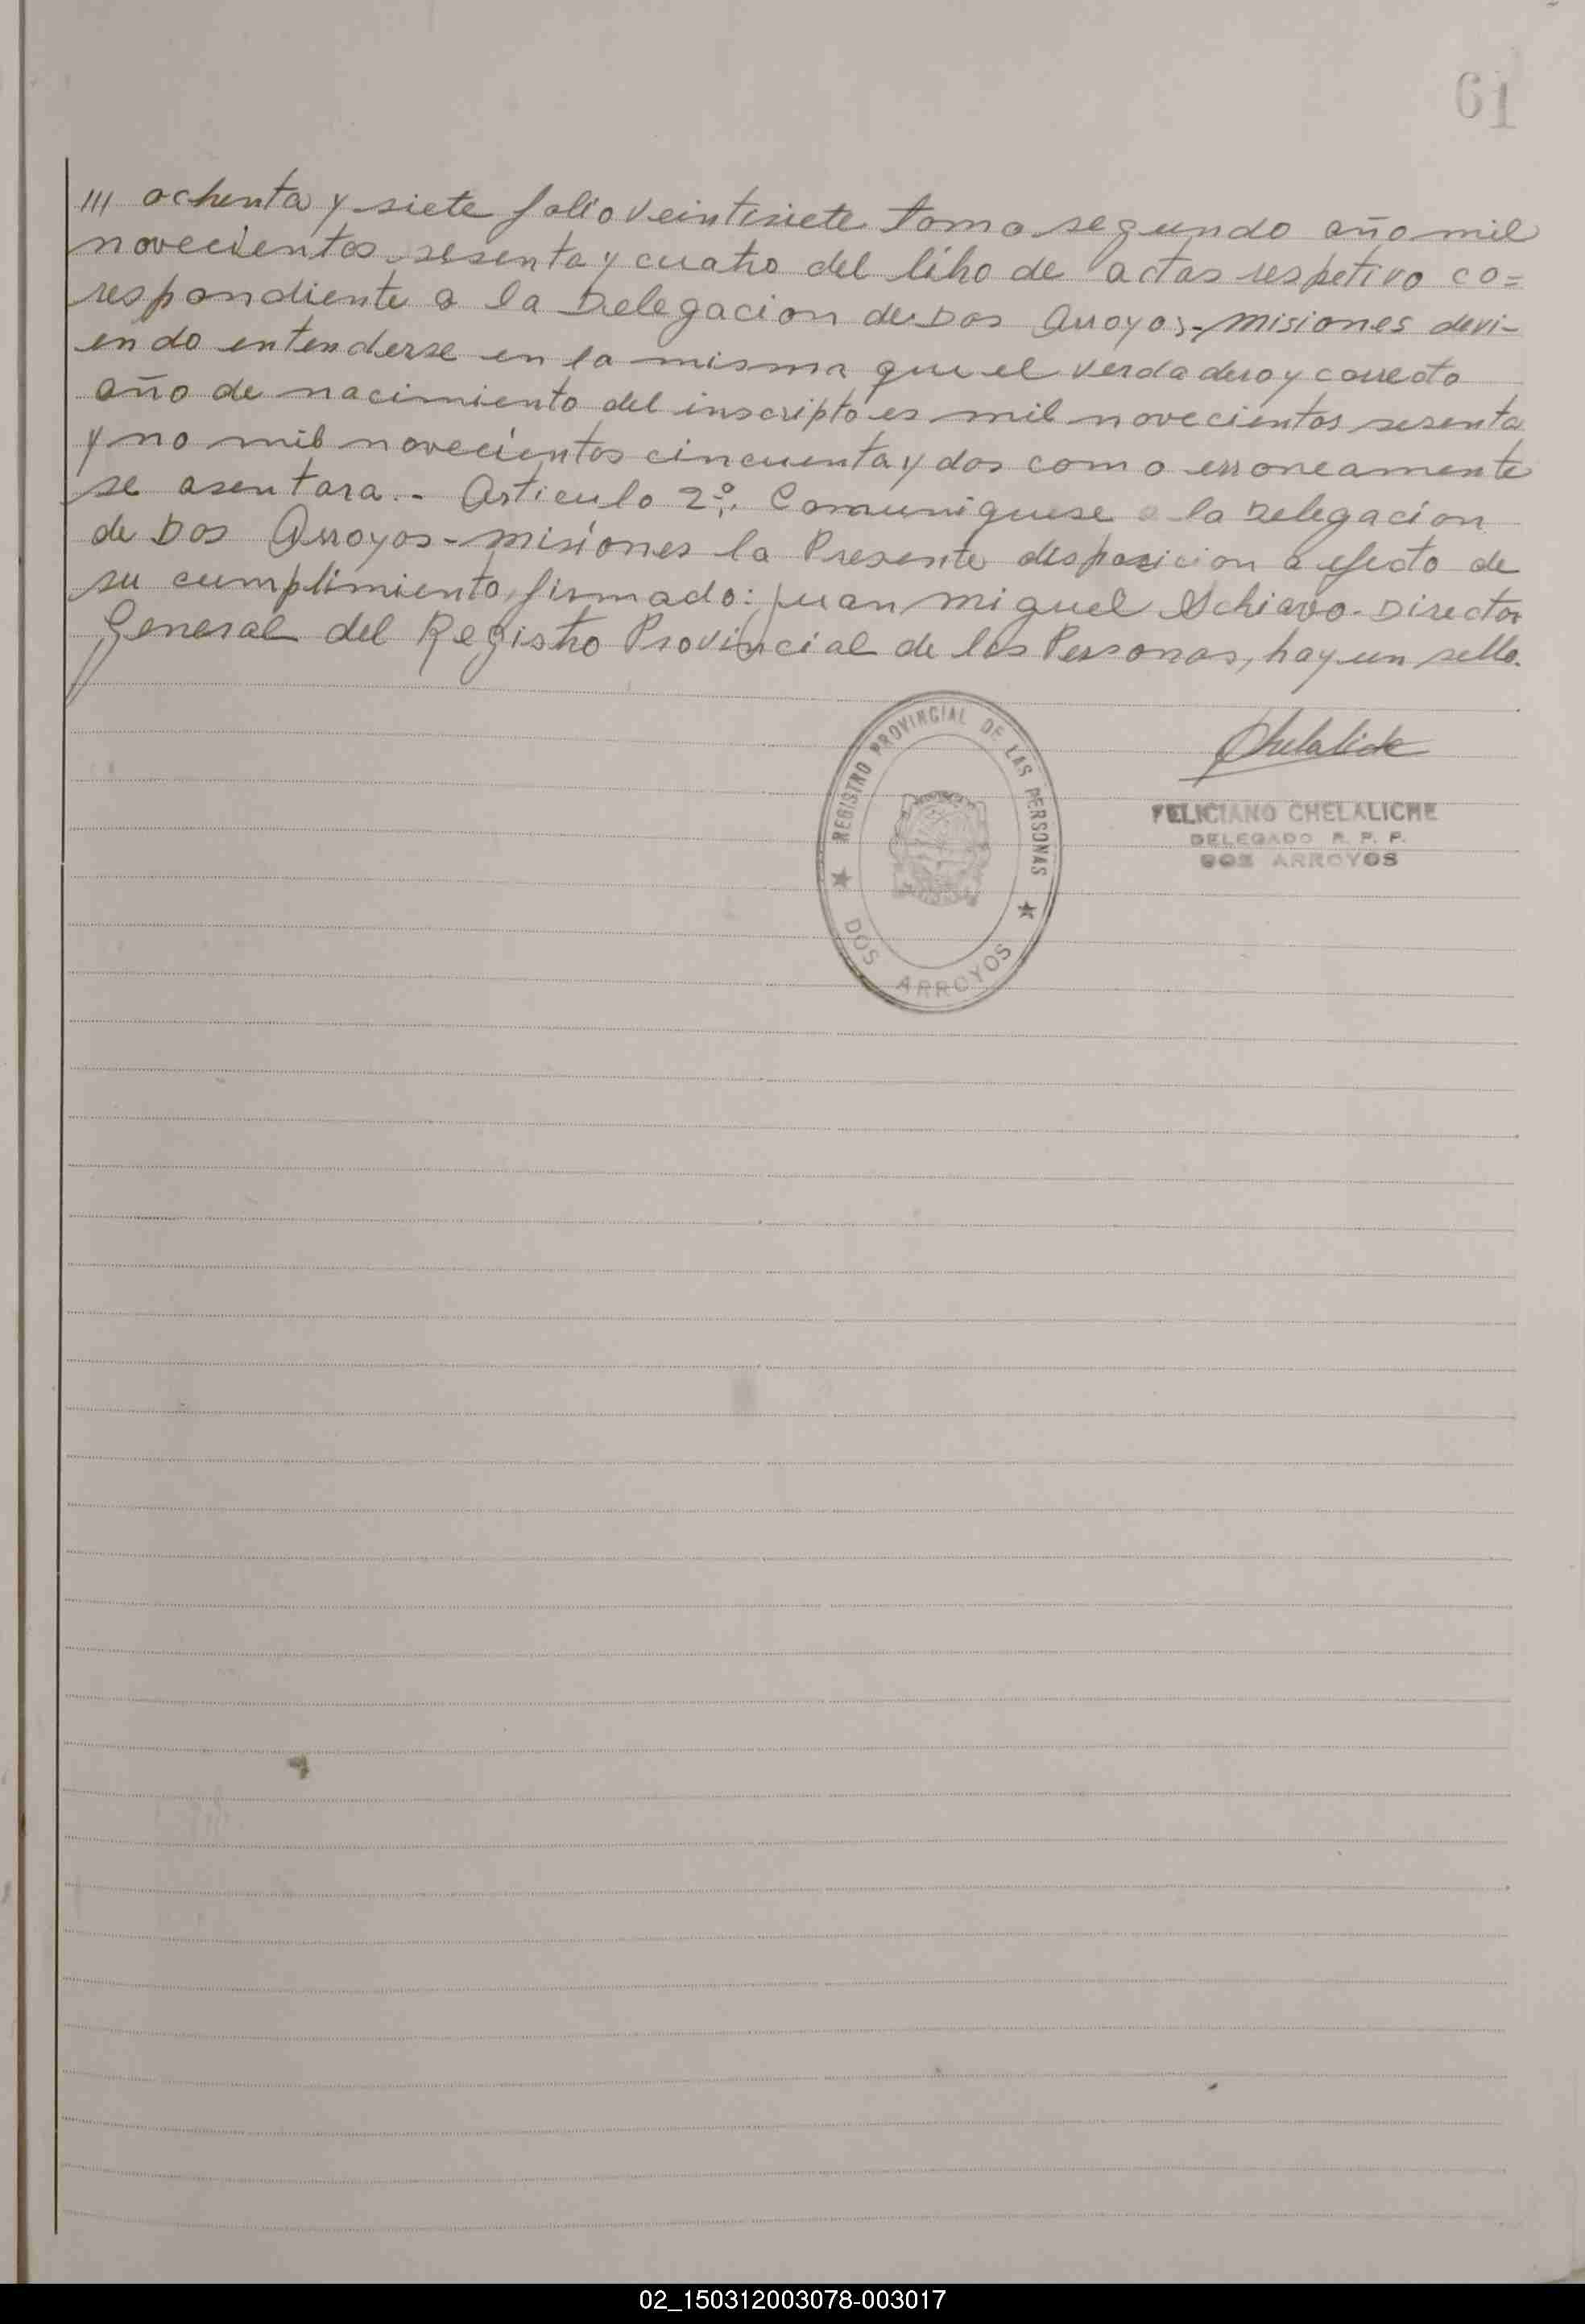 61
/// ochenta y siete folio veintisiete tomo segundo año mil
novecientos sesenta y cuatro del libro de actas respetivo co=
respondiente a la Delegacion de Dos Arroyos-Misiones devi-
endo entenderse en la misma que el verdadero y correcto
año de nacimiento del inscripto es mil novecientos sesenta
y no mil novecientos cincuenta y dos como erroneamente
se asentara.- Articulo 2º. Comuniquese a la Delegacion
de Dos Arroyos-Misiones la Presente disposicion a efecto de
su cumplimiento, firmado: Juan Miguel Schiavo-Director
General del Registro Provincial de las Personas, hay un sello.
Chelaliche
REGISTRO PROVINCIAL DE LAS PERSONAS
★ DOS ARROYOS ★
FELICIANO CHELALICHE
DELEGADO R. P. P.
DOS ARROYOS
02_150312003078-003017